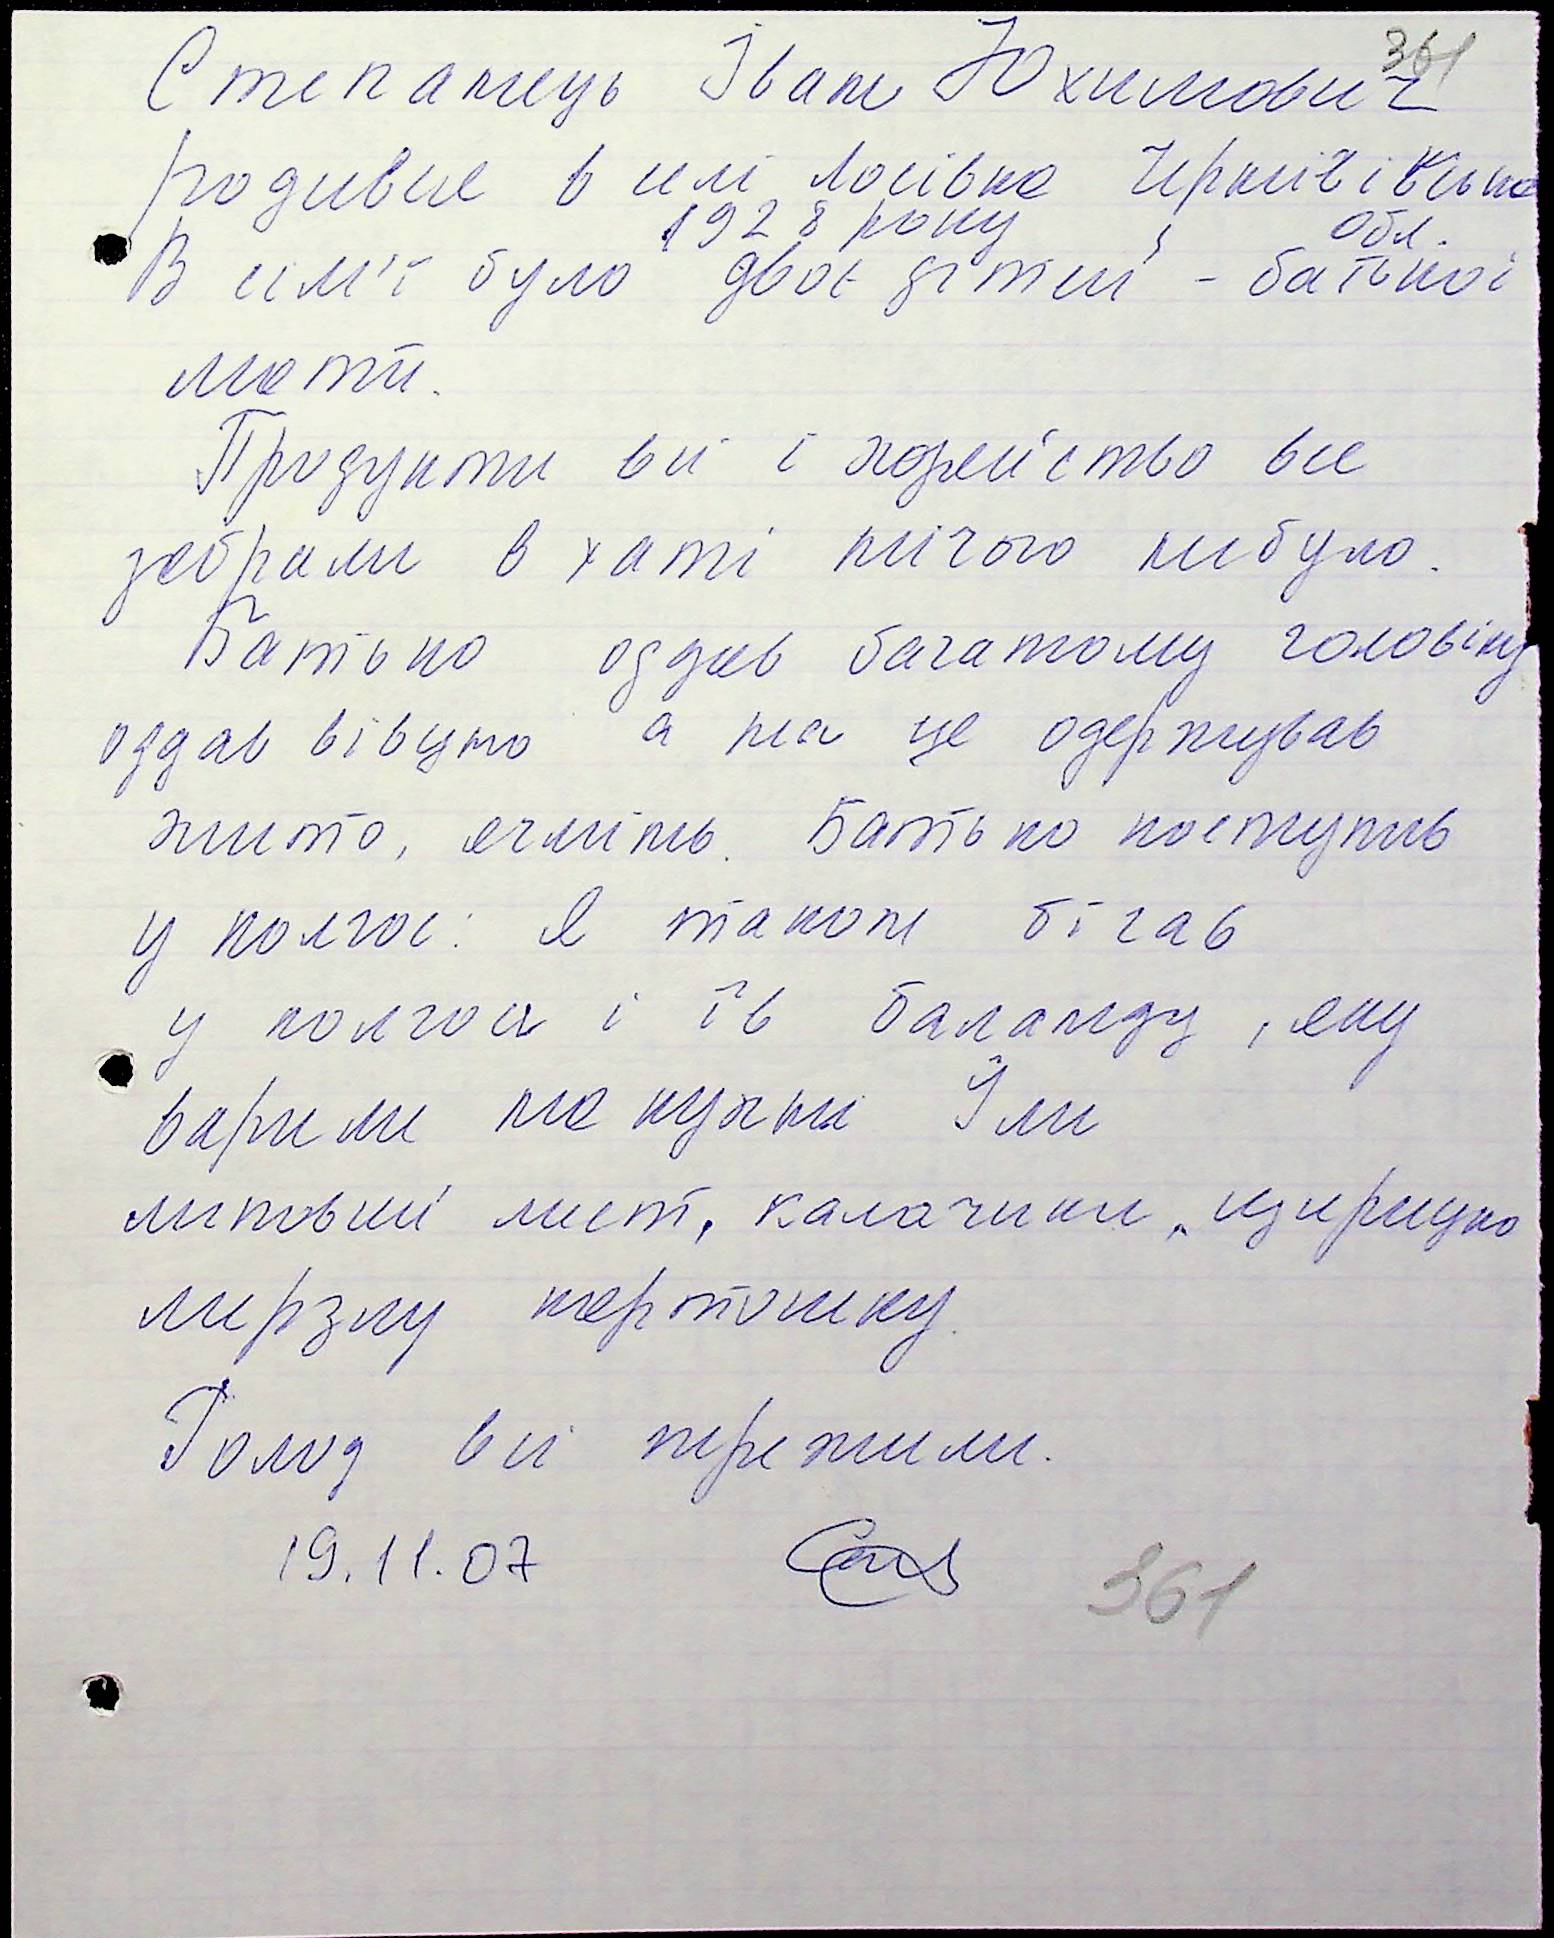 361
Степанець Іван Юхимович
родився в селі Лосівка Чернігівська
1928 року обл.
В сім'ї було двоє дітей - батько і
мати.
Продукти всі і хозяйство все
забрали в хаті нічого небуло.
Батько оддав багатому чоловіку
оддав вівцю а на це одержував
жито, ячмінь. Батько поступив
у колгос. Я також бігав
у колгосп і їв баланду, яку
варили на кухні Їли
липовий лист, калачики,
мерзлу картошку.
Голод всі пережили.
19.11.07
361